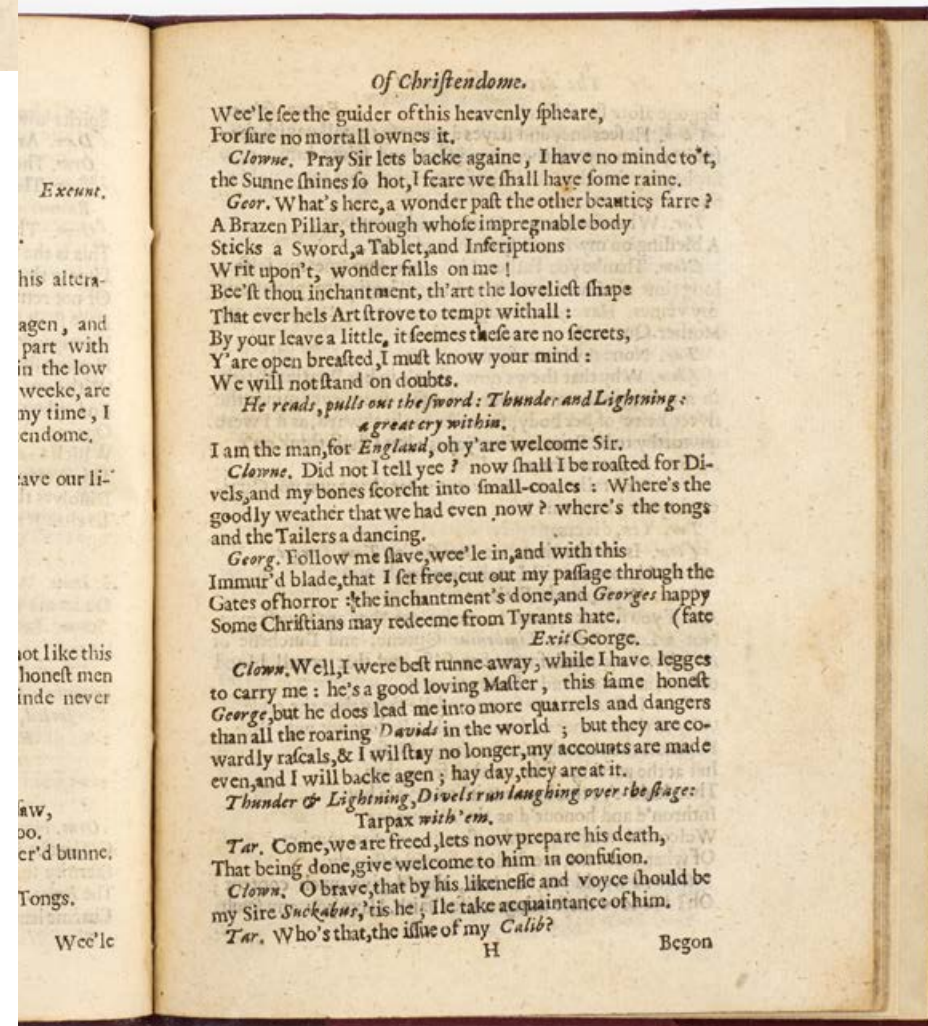 Exeunt.
his altera-
agen, and
part with
in the low
weeke, are
my time, I
endome.
ave our li-
ot like this
honest men
inde never
aw,
oo.
er'd bunne.
Tongs.
Wee'le
Of Chriſtendome.
Wee'le ſee the guider of this heavenly ſpheare,
For ſure no mortall ownes it.
Clowne. Pray Sir lets backe againe, I have no minde to't,
the Sunne ſhines ſo hot, I feare we ſhall have ſome raine.
Geor. What's here, a wonder paſt the other beauties farre?
A Brazen Pillar, through whoſe impregnable body
Sticks a Sword, a Tablet, and Inſcriptions
Writ upon't, wonder falls on me!
Bee'ſt thou inchantment, th'art the lovelieſt ſhape
That ever hels Art ſtrove to tempt withall:
By your leave a little, it ſeemes theſe are no ſecrets,
Y'are open breaſted, I muſt know your mind:
We will not ſtand on doubts.
He reads, pulls out the ſword: Thunder and Lightning:
a great cry within.
I am the man, for England, oh y'are welcome Sir.
Clowne. Did not I tell yee? now ſhall I be roaſted for Di-
vels, and my bones ſcorcht into ſmall-coales: Where's the
goodly weather that we had even now? where's the tongs
and the Tailers a dancing.
Georg. Follow me ſlave, wee'le in, and with this
Immur'd blade, that I ſet free, cut out my paſſage through the
Gates of horror: the inchantment's done, and Georges happy
Some Chriſtians may redeeme from Tyrants hate. (fate
Exit George.
Clown. Well, I were beſt runne away, while I have legges
to carry me: he's a good loving Maſter, this ſame honeſt
George, but he does lead me into more quarrels and dangers
than all the roaring Davids in the world; but they are co-
wardly raſcals, & I wil ſtay no longer, my accounts are made
even, and I will backe agen; hay day, they are at it.
Thunder & Lightning, Divels run laughing over the ſtage:
Tarpax with 'em.
Tar. Come, we are freed, lets now prepare his death,
That being done, give welcome to him in confuſion.
Clown. O brave, that by his likeneſſe and voyce ſhould be
my Sire Suckabus, 'tis he; Ile take acquaintance of him.
Tar. Who's that, the iſſue of my Calib?
H Begon